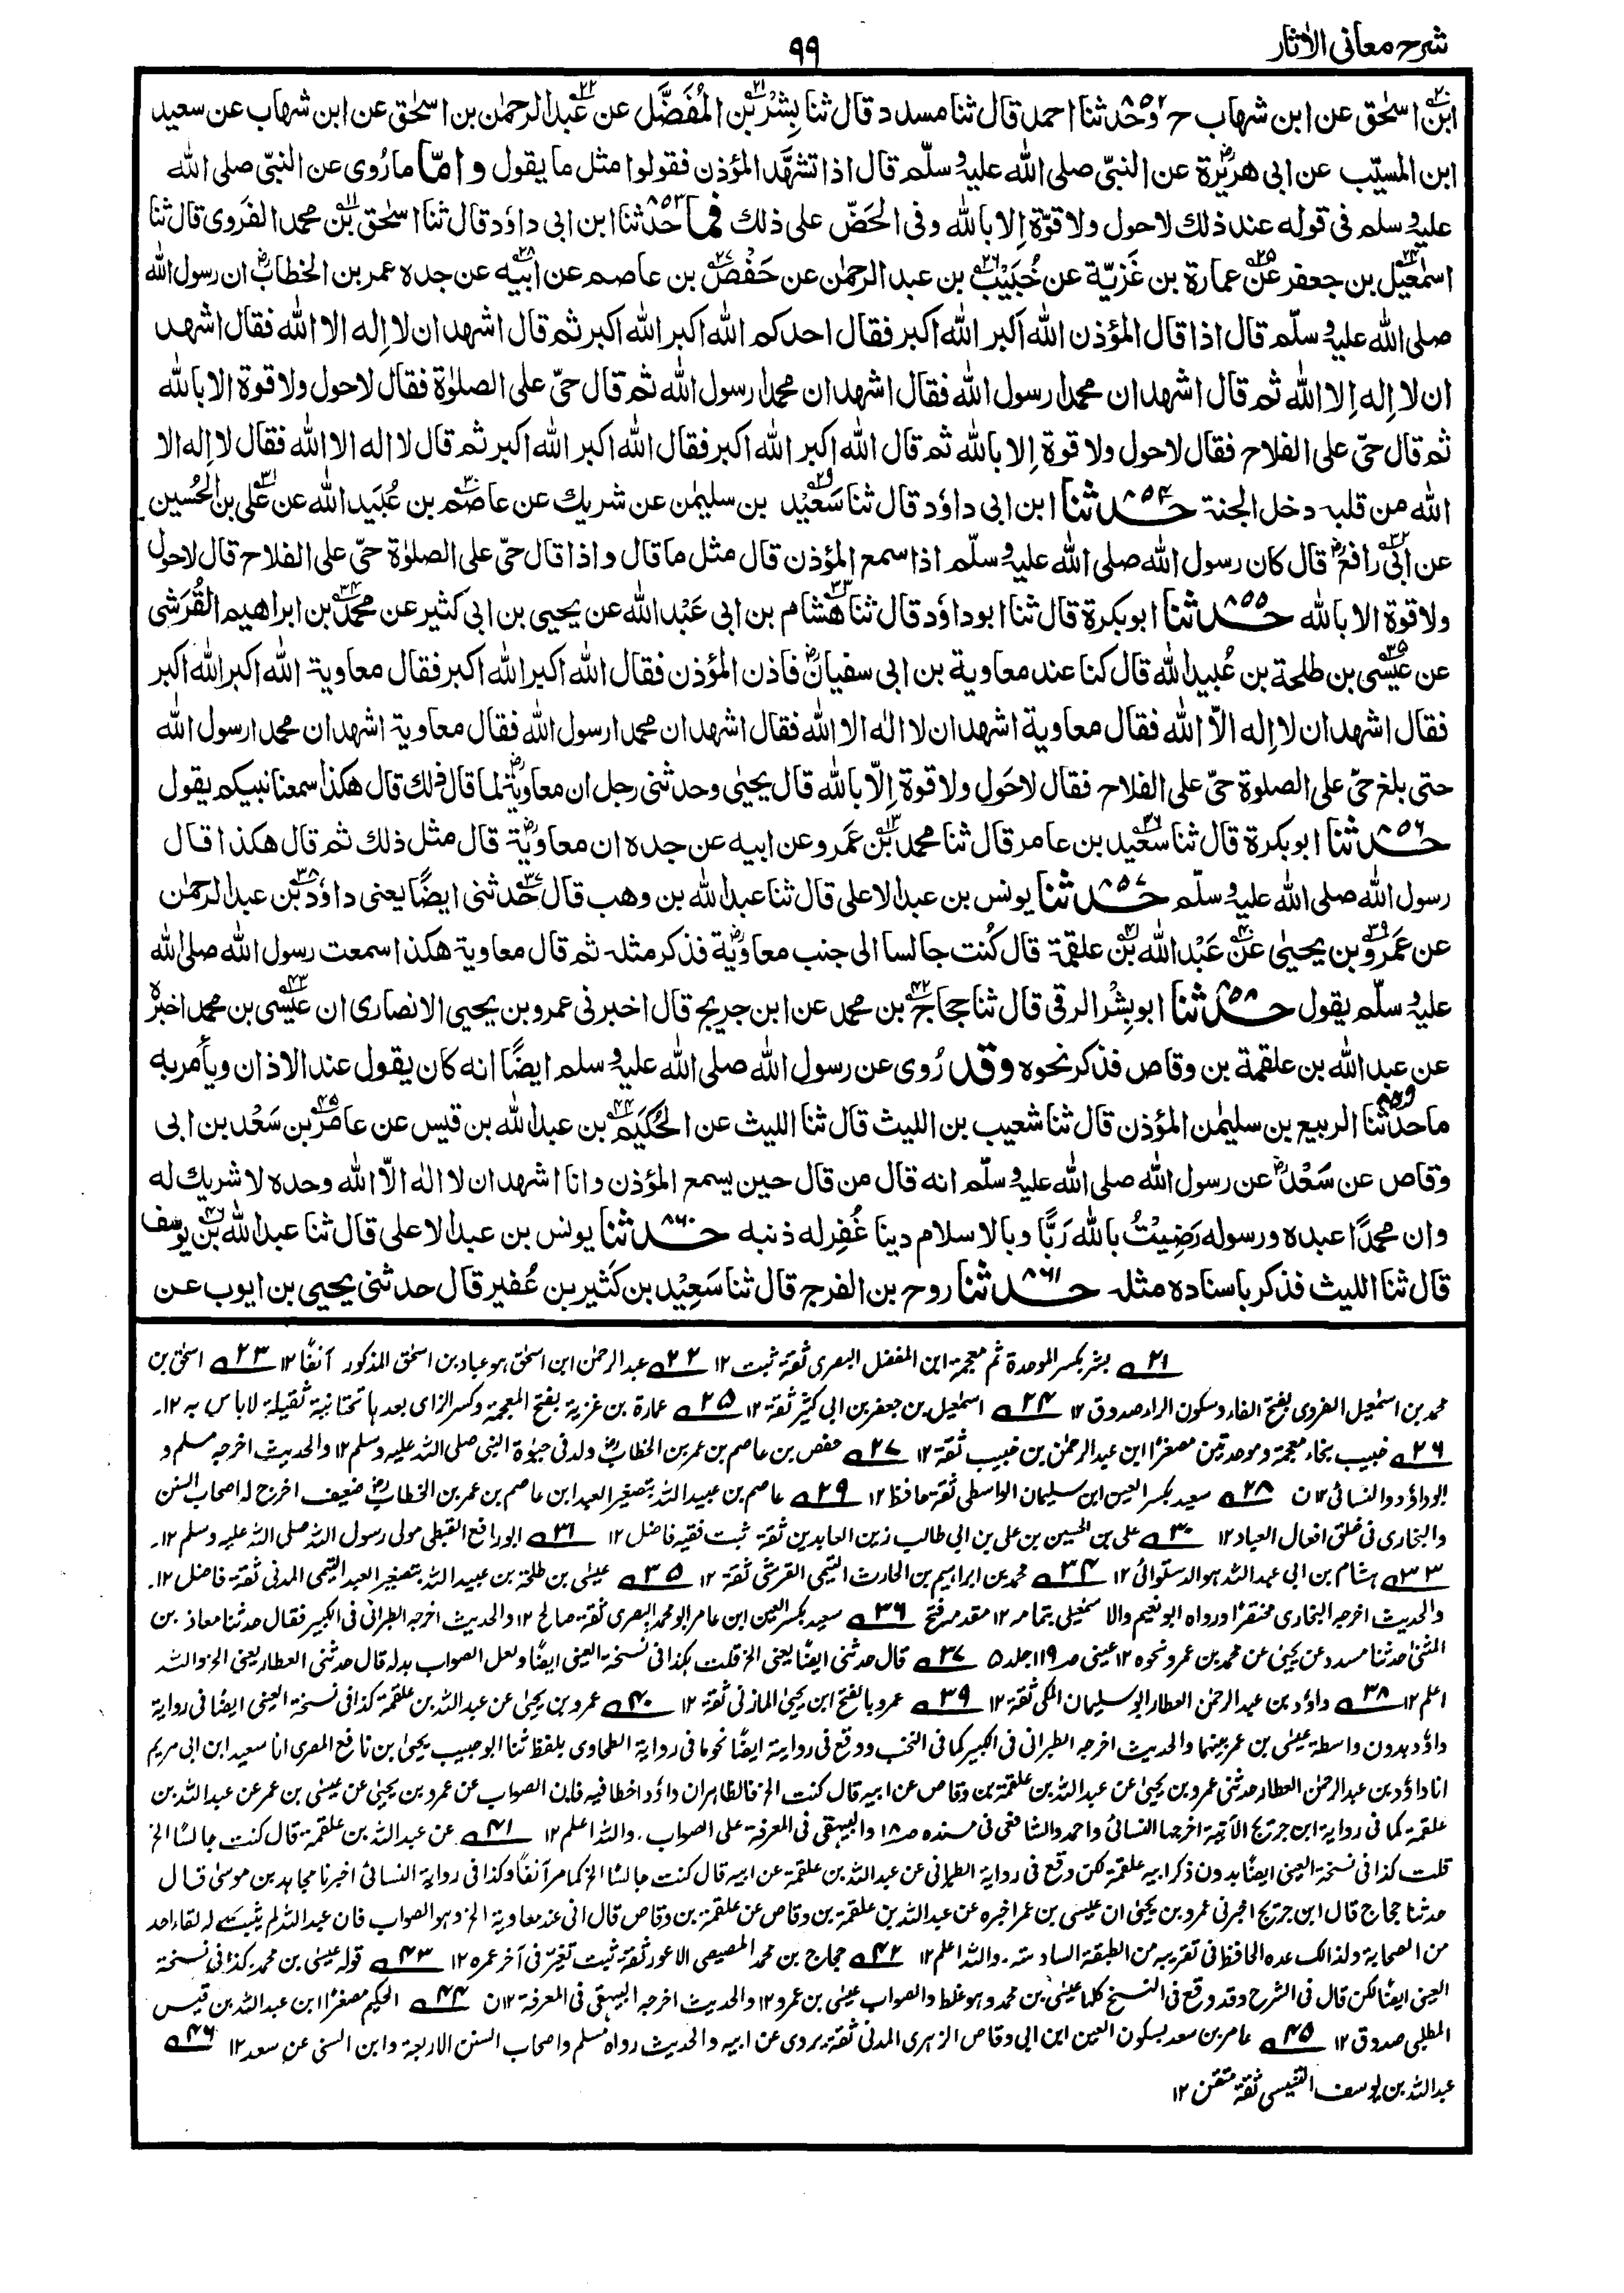 شرح معانی الاٰثار
۹۹
ابن اسحٰق عن ابن شهاب ح وحدثنا احمد قال ثنا مسدد قال ثنا بِشْر بن المُفَضَّل عن عبد الرحمٰن بن اسحٰق عن ابن شهاب عن سعيد
ابن المسيّب عن ابی هريرة عن النبیّ صلی الله عليه وسلّم قال اذا تشهَّد المؤذن فقولوا مثل ما يقول و امّا ما رُوی عن النبیّ صلی الله
عليه وسلم فی قوله عند ذلك لا حول ولا قوّة إلا بالله وفی الحَضّ علی ذلك فما حدثنا ابن ابی داؤد قال ثنا اسحٰق بن محمد الفَروی قال ثنا
اسمٰعيل بن جعفر عن عمارة بن غَزيّة عن خُبَيْب بن عبد الرحمٰن عن حَفْص بن عاصم عن ابيه عن جده عمر بن الخطاب ان رسول الله
صلی الله عليه وسلّم قال اذا قال المؤذن الله اكبر الله اكبر فقال احدكم الله اكبر الله اكبر ثم قال اشهد ان لا اِله الا الله فقال اشهد
ان لا اِله اِلا الله ثم قال اشهد ان محمدا رسول الله فقال اشهد ان محمدا رسول الله ثم قال حیّ علی الصلوٰة فقال لا حول ولا قوة الا بالله
ثم قال حیّ علی الفلاح فقال لا حول ولا قوة اِلا بالله ثم قال الله اكبر الله اكبر فقال الله اكبر الله اكبر ثم قال لا اله الا الله فقال لا اِله الا
الله من قلبه دخل الجنة ۸۵۴ حدثنا ابن ابی داؤد قال ثنا سَعِيْد بن سليمٰن عن شريك عن عاصم بن عُبَيد الله عن علی بن الحُسين
عن ابی رافع قال كان رسول الله صلی الله عليه وسلّم اذا سمع المؤذن قال مثل ما قال واذا قال حیّ علی الصلوٰة حیّ علی الفلاح قال لا حول
ولا قوة الا بالله ۸۵۵ حدثنا ابوبكرة قال ثنا ابوداؤد قال ثنا هشام بن ابی عَبْد الله عن يحيی بن ابی كثير عن محمد بن ابراهيم القُرَشی
عن عيسی بن طلحة بن عُبيد الله قال كنا عند معاوية بن ابی سفيان فاذن المؤذن فقال الله اكبر الله اكبر فقال معاوية الله اكبر الله اكبر
فقال اشهد ان لا اِله الّا الله فقال معاوية اشهد ان لا اله الا الله فقال اشهد ان محمدا رسول الله فقال معاوية اشهد ان محمدا رسول الله
حتی بلغ حیّ علی الصلوة حیّ علی الفلاح فقال لا حَول ولا قوة اِلّا بالله قال يحيٰی وحدثنی رجل ان معاوية لما قال ذلك قال هكذا سمعنا نبيكم يقول
۸۵۶ حدثنا ابوبكرة قال ثنا سعيد بن عامر قال ثنا محمد بن عَمرو عن ابيه عن جده ان معاوية قال مثل ذلك ثم قال هكذا قال
رسول الله صلی الله عليه وسلّم ۸۵۷ حدثنا يونس بن عبد الاعلی قال ثنا عبد الله بن وهب قال حدثنی ايضًا يعنی داؤد بن عبد الرحمٰن
عن عَمرو بن يحيیٰ عن عَبْد الله بن علقمة قال كُنت جالسا الی جنب معاوية فذكر مثله ثم قال معاوية هكذا سمعت رسول الله صلی الله
عليه وسلّم يقول ۸۵۸ حدثنا ابو بِشْر الرقی قال ثنا حجاج بن محمد عن ابن جريج قال اخبرنی عمرو بن يحيی الانصاری ان عيسی بن محمد اخبره
عن عبد الله بن علقمة بن وقاص فذكر نحوه وقد رُوی عن رسول الله صلی الله عليه وسلم ايضًا انه كان يقول عند الاذان ويأمر به
ما حدثنا الربيع بن سليمٰن المؤذن قال ثنا شعيب بن الليث قال ثنا الليث عن الحُكَيم بن عبد الله بن قيس عن عامر بن سَعْد بن ابی
وقاص عن سَعْد عن رسول الله صلی الله عليه وسلّم انه قال من قال حين يسمع المؤذن وانا اشهد ان لا الٰه الّا الله وحده لا شريك له
وان محمدًا عبده ورسوله رَضِيْتُ بالله رَبًّا وبالاسلام دينا غُفِر له ذنبه ۸۶۰ حدثنا يونس بن عبد الاعلی قال ثنا عبد الله بن يوسف
قال ثنا الليث فذكر باسناده مثله ۸۶۱ حدثنا روح بن الفرج قال ثنا سَعِيْد بن كَثير بن عُفير قال حدثنی يحيی بن ايوب عن
۲۱ بشر بكسر الموحدة ثم معجمة ابن المفضل البصری ثقة ثبت ۱۲ ۲۲ عبد الرحمٰن ابن اسحٰق هو عباد بن اسحٰق المذكور آنفًا ۱۲ ۲۳ اسحٰق بن
محمد بن اسمٰعيل الفروی بفتح الفاء وسكون الراء صدوق ۱۲ ۲۴ اسمٰعيل بن جعفر بن ابی كثير ثقة ۱۲ ۲۵ عمارة بن غزية بفتح المعجمة وكسر الزای بعدها تحتانية ثقيلة لا باس به ۱۲۔
۲۶ خبيب بخاء معجمة وموحدتين مصغرًا ابن عبد الرحمٰن بن خبيب ثقة ۱۲ ۲۷ حفص بن عاصم بن عمر بن الخطاب ولد فی حيٰوة النبی صلی الله عليه وسلم ۱۲ والحديث اخرجه مسلم و
ابوداؤد والنسائی ۱۲ن ۲۸ سعيد بكسر العين ابن سليمان الواسطی ثقة حافظ ۱۲ ۲۹ عاصم بن عبيد الله بتصغير العبد ابن عاصم بن عمر بن الخطاب ضعيف اخرج له اصحاب السنن
والبخاری فی خلق افعال العباد ۱۲ ۳۰ علی بن الحسين بن علی بن ابی طالب زين العابدين ثقة ثبت فقيه فاضل ۱۲ ۳۱ ابورافع القبطی مولی رسول الله صلی الله عليه وسلم ۱۲۔
۳۳ هشام بن ابی عبد الله هو الدستوائی ۱۲ ۳۴ محمد بن ابراهيم بن الحارث التيمی القرشی ثقة ۱۲ ۳۵ عيسٰی بن طلحة بن عبيد الله بتصغير العبد التيمی المدنی ثقة فاضل ۱۲۔
والحديث اخرجه البخاری مختصرًا ورواه ابونعيم والاسمٰعيلی بتمامه ۱۲ مقدمه فتح ۳۶ سعيد بكسر العين ابن عامر ابومحمد البصری ثقة صالح ۱۲ والحديث اخرجه الطبرانی فی الكبير فقال حدثنا معاذ بن
المثنٰی حدثنا مسدد عن يحيیٰ عن محمد بن عمرو نحوه ۱۲ عينی صـ ۱۱۹ جلد ۵ ۳۷ قال حدثنی ايضًا يعنی الخ قلت هكذا فی نسخة العينی ايضًا ولعل الصواب بدله قال حدثنی العطار يعنی الخ والله
اعلم ۱۲ ۳۸ داؤد بن عبد الرحمٰن العطار ابوسليمان المكی ثقة ۱۲ ۳۹ عمرو بالفتح ابن يحيیٰ المازنی ثقة ۱۲ ۴۰ عمرو بن يحيیٰ عن عبد الله بن علقمة كذا فی نسخة العينی ايضًا فی رواية
داؤد بدون واسطة عيسٰی بن عمر بينهما والحديث اخرجه الطبرانی فی الكبير كما فی النخب ووقع فی روايته ايضًا نحو ما فی رواية الطحاوی بلفظ ثنا ابوحبيب يحيیٰ بن نافع المصری انا سعيد ابن ابی مريم
انا داؤد بن عبد الرحمٰن العطار حدثنی عمرو بن يحيیٰ عن عبد الله بن علقمة بن وقاص عن ابيه قال كنت الخ فالظاهر ان داؤد اخطا فيه فان الصواب عن عمرو بن يحيیٰ عن عيسٰی بن عمر عن عبد الله بن
علقمة كما فی رواية ابن جريج الآتية اخرجها النسائی واحمد والشافعی فی مسنده صـ ۱۸ والبيهقی فی المعرفة علی الصواب. والله اعلم ۱۲ ۴۱ عن عبد الله بن علقمة قال كنت جالسًا الخ
قلت كذا فی نسخة العينی ايضًا بدون ذكر ابيه علقمة لكن وقع فی رواية الطبرانی عن عبد الله بن علقمة عن ابيه قال كنت جالسًا الخ كما مر آنفًا وكذا فی رواية النسائی اخبرنا مجاهد بن موسٰی قال
حدثنا حجاج قال ابن جريج اخبرنی عمرو بن يحيیٰ ان عيسٰی بن عمر اخبره عن عبد الله بن علقمة بن وقاص عن علقمة بن وقاص قال انی عند معاوية الخ وهو الصواب فان عبد الله لم يثبت له لقاء احد
من الصحابة ولذالك عده الحافظ فی تقريبه من الطبقة السادسة. والله اعلم ۱۲ ۴۲ حجاج بن محمد المصيصی الاعور ثقة ثبت تغير فی آخر عمره ۱۲ ۴۳ قوله عيسٰی بن محمد كذا فی نسخة
العينی ايضًا لكن قال فی الشرح وقد وقع فی النسخ كلها عيسٰی بن محمد وهو غلط والصواب عيسٰی بن عمرو ۱۲ والحديث اخرجه البيهقی فی المعرفة ۱۲ن ۴۴ الحكيم مصغرًا ابن عبد الله بن قيس
المطلبی صدوق ۱۲ ۴۵ عامر بن سعد بسكون العين ابن ابی وقاص الزهری المدنی ثقة يروی عن ابيه والحديث رواه مسلم واصحاب السنن الاربعة وابن السنی عن سعد ۱۲ ۴۶
عبد الله بن يوسف التنيسی ثقة متقن ۱۲